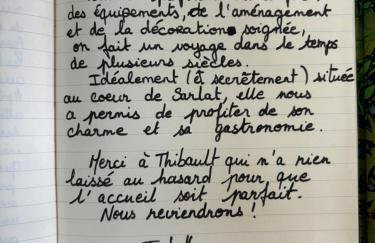 des équipements, de l'aménagement
et de la décoration soignée,
on fait un voyage dans le temps
de plusieurs siècles.
Idéalement (& secrètement) située
au coeur de Sarlat, elle nous
a permis de profiter de son
charme et sa gastronomie.
Merci à Thibault qui n'a rien
laissé au hasard pour que
l'accueil soit parfait.
Nous reviendrons !